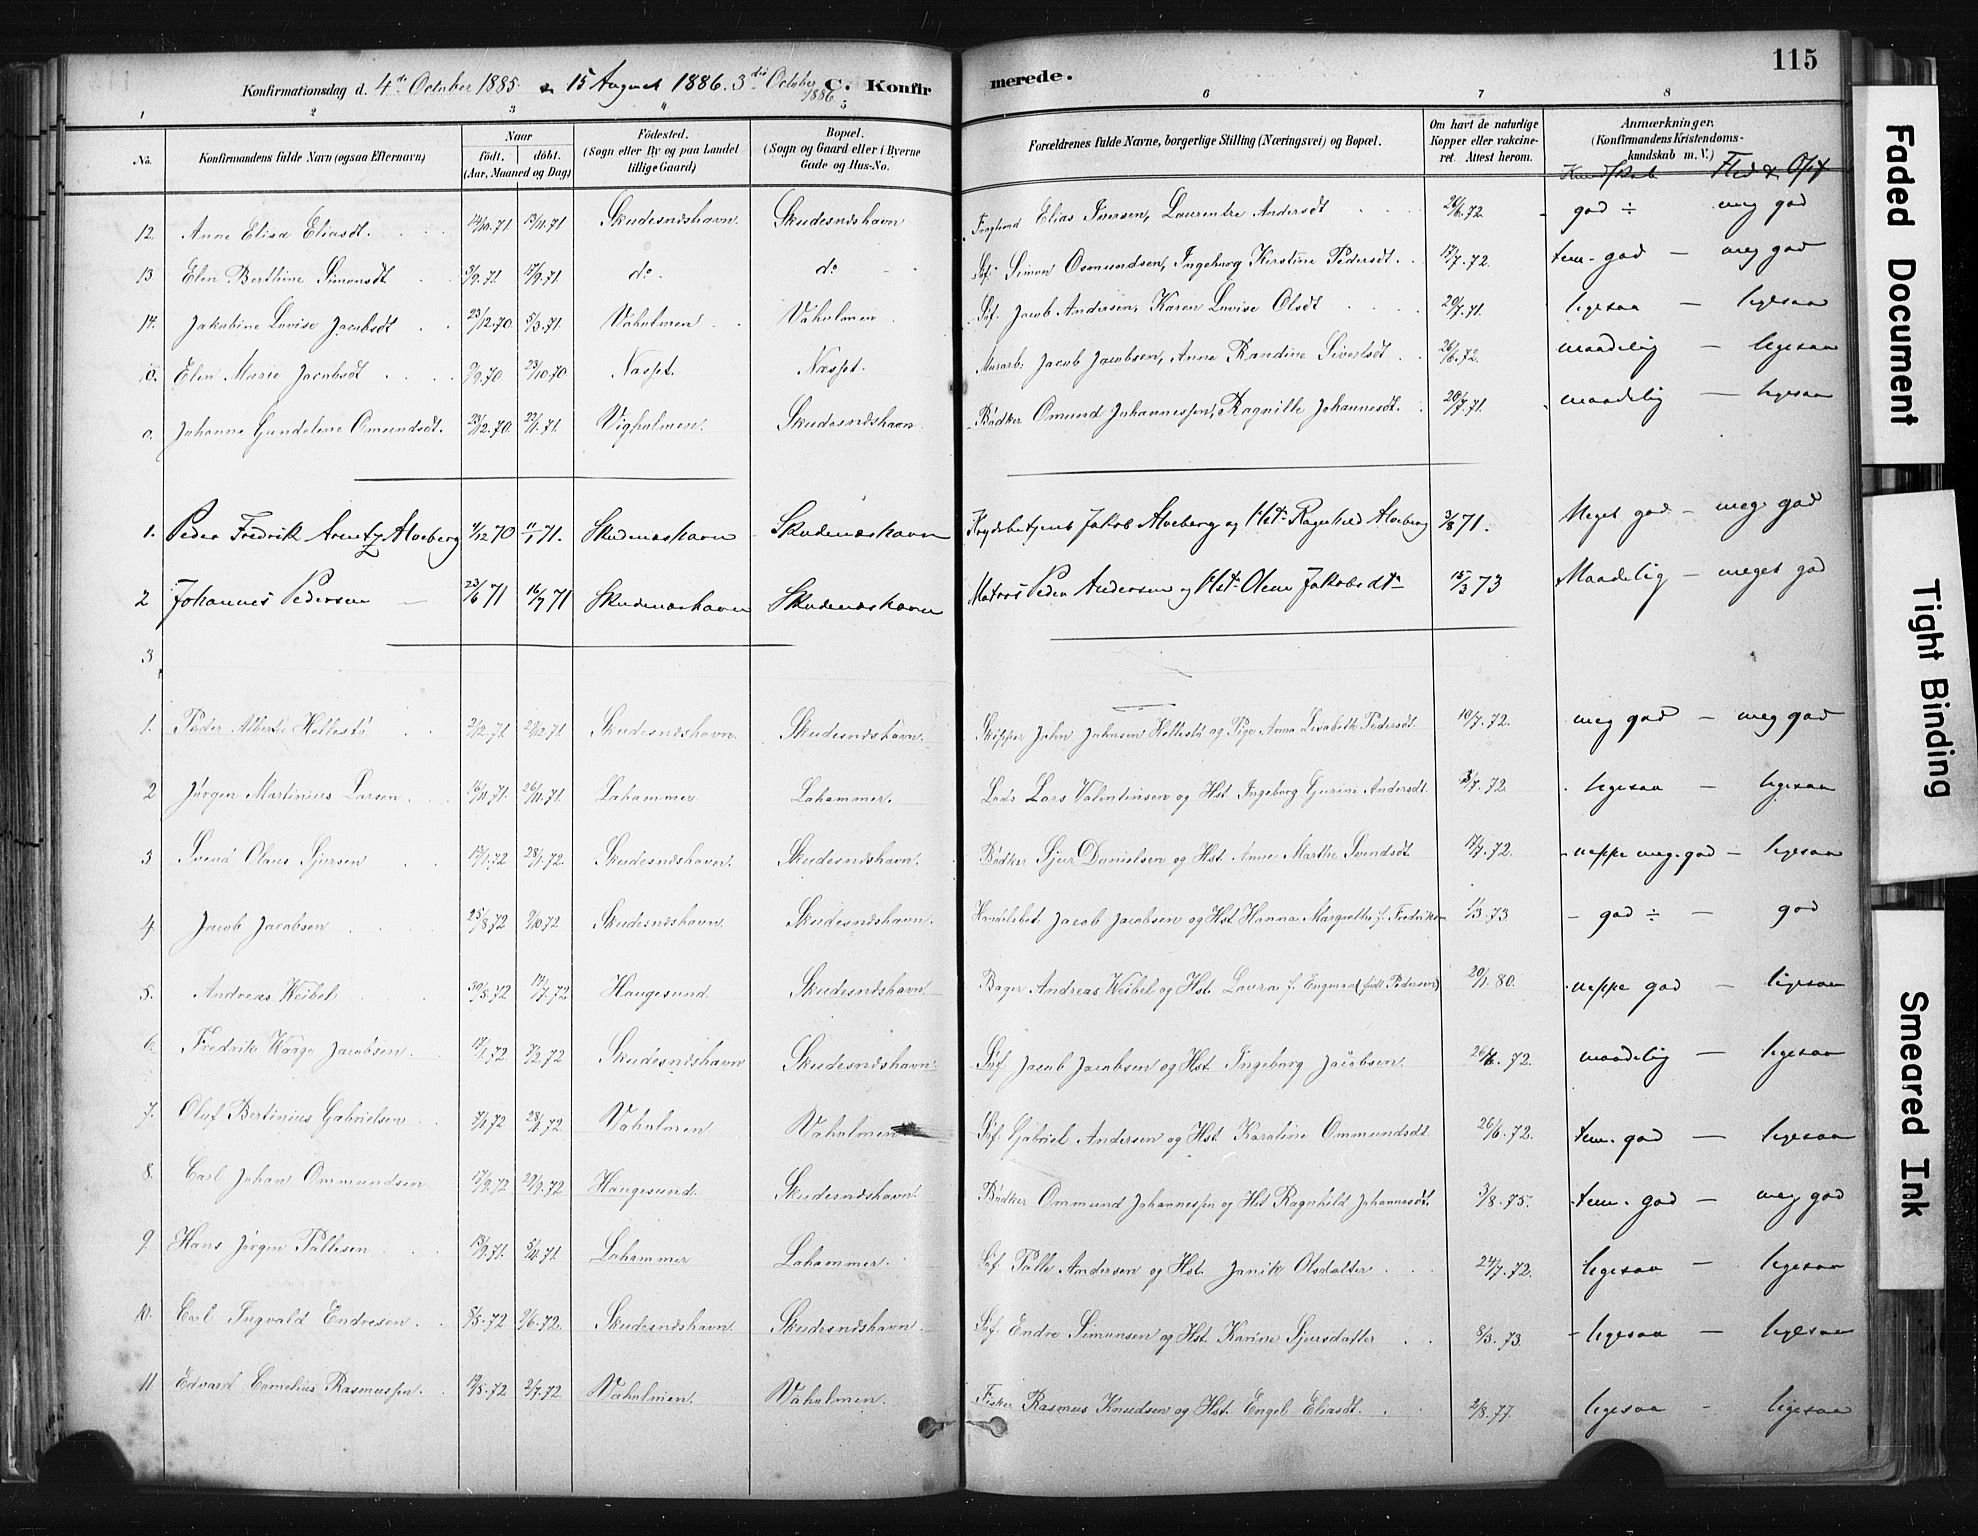 115
Konfirmationsdag d. 4de October 1885. 15 August 1886. 3die October 1886 C. Konfirmerede.
1 2 3 4 5 6 7 8
No. Konfirmandens fulde Navn (ogsaa Efternavn) Naar født. døbt. (Aar, Maaned og Dag) Fødested. (Sogn eller By og paa Landet tillige Gaard) Bopæl. (Sogn og Gaard eller i Byerne Gade og Hus-No. Forældrenes fulde Navne, borgerlige Stilling (Næringsvei) og Bopæl. Om havt de naturlige Kopper eller vakcineret. Attest herom. Anmærkninger. (Konfirmandens Kristendomskundskab m. V.)
Kundskab — Flid & Opf
12. Anne Elisa Eliasdt. 14/10.71 13/11.71 Skudesnæshavn. Skudesnæshavn Elias Iversen, Laurentze Andersdt 26/6.72. god ÷ meg god
13 Elen Berthine Simonsdt 3/9.71 17/9.71 do do Søf. Simon Osmundsen, Ingeborg Kirstine Pedersdt. 17/7.72. tem. god — meg god
14. Jakobine Lovise Jacobsdt 23/12.70 5/3.71 Vaholmen Vaholmen Søf. Jacob Andersen, Karen Lovise Olsdt 20/7.71. ligesaa — ligesaa
Elen Marie Jacobsdt 9/9.70 23/10.70 Næsset. Næsset. Murarb. Jacob Jacobsen, Anne Randine Sivertsdt 26/6.72. maadelig — ligesaa
Johanne Gundeline Omundsdt. 23/12.70. 22/1.71. Vigholmen. Skudesnæshavn Bødker Omund Johannessen, Ragnille Johannesdt. 20/7.71. maadelig — ligesaa
1. Peder Fredrik Arentz Alveberg 4/12 70 11/1 71. Skudenæshavn Skudenæshavn Jakob Alveberg og Hst. Ragnhild Alveberg 3/8 71. Meget god — meg. god
2 Johannes Pedersen 23/6 71 16/7 71 Skudenæshavn Skudenæshavn Matros Peder Andersen og Hst. Olene Jakobsdtr 15/3 73 Maadelig — meget god
3
1. Peder Albert Hellestø 2/12.71 29/12.71 Skudesnæshavn. Skudesnæshavn. Skipper John Johnsen Hellestø og Pige Anna Lisabeth Pedersdt. 10/7.72. meg god — meg god
2 Jørgen Martinius Larsen 16/11.71. 26/11.71. Lahammer. Lahammer. Lods Lars Valentinsen og Hst. Ingeborg Gurine Andersdt. 3/7.72. ligesaa — ligesaa
3 Svend Olaus Sjursen 17/1.72 28/1.72. Skudesnæshavn. Skudesnæshavn. Bødker Sjur Danielsen og Hst. Anne Marthe Svendsdt. 17/7.72. neppe meg. god — ligesaa
4. Jacob Jacobsen 25/8.72 9/10.72 Skudesnæshavn. Skudesnæshavn. Handelsbet. Jacob Jacobsen og Hst Hanna Margrethe f. Fredriksen 1/3.73. god ÷ — god
5. Andreas Weibel 30/5.72 14/7.72 Haugesund. Skudesnæshavn Bager Andreas Weibel og Hst. Laura f. Engman (født Pedersen) 20/1.80. neppe god — ligesaa
6. Fredrik Waage Jacobsen. 17/1.72 4/2.72 Skudesnæshavn Skudesnæshavn Søf. Jacob Jacobsen og Hst Ingeborg Jacobsen. 26/6.72. maadelig — ligesaa
7. Oluf Bertinius Gabrielsen 7/1.72 28/1.72. Vaholmen Vaholmen Søf. Gabriel Andersen og Hst. Karoline Ommundsdt 26/6.72. tem. god — ligesaa
8. Carl Johan Ommundsen 17/9.72 29/9.72 Haugesund. Skudesnæshavn. Bødker Ommund Johannessen og Hst Ragnhild Johannesdt. 3/8.75. tem. god — meg god
9. Hans Jørgen Pallesen 13/9.71. 5/11.71. Lahammer Lahammer. Søf. Palle Andersen og Hst. Janik Olsdatter 24/7.72. ligesaa — ligesaa
10. Carl Ingvald Endresen. 8/5.72 9/6.72. Skudesnæshavn. Skudesnæshavn. Søf. Endre Simonsen og Hst. Karine Sjursdatter 8/3.73. ligesaa — ligesaa
11 Edvard Cornelius Rasmussen. 12/5.72 2/7.72. Vaholmen. Vaholmen. Fisker Rasmus Knudsen og Hst. Engel Eliasdt. 2/8.77. ligesaa — ligesaa
Faded Document
Tight Binding
Smeared Ink